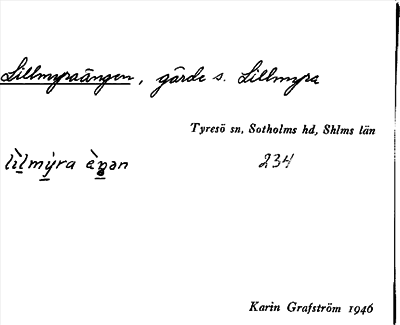 Lillmyraängen, gärde s. Lillmyra
Tyresö sn, Sotholms hd, Shlms län
lìlmỳra ὲŋən 234
Karin Grafström 1946